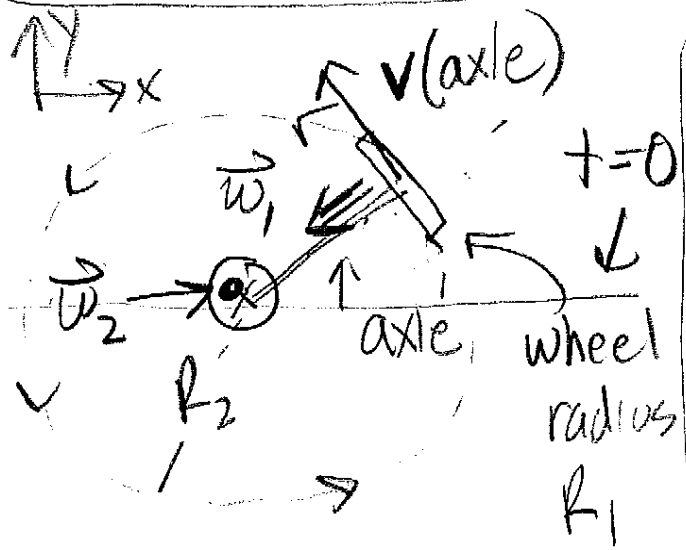 Y
x
v(axle)
t=0
w⃗₁
w⃗₂
axle
wheel
radius
R₁
R₂